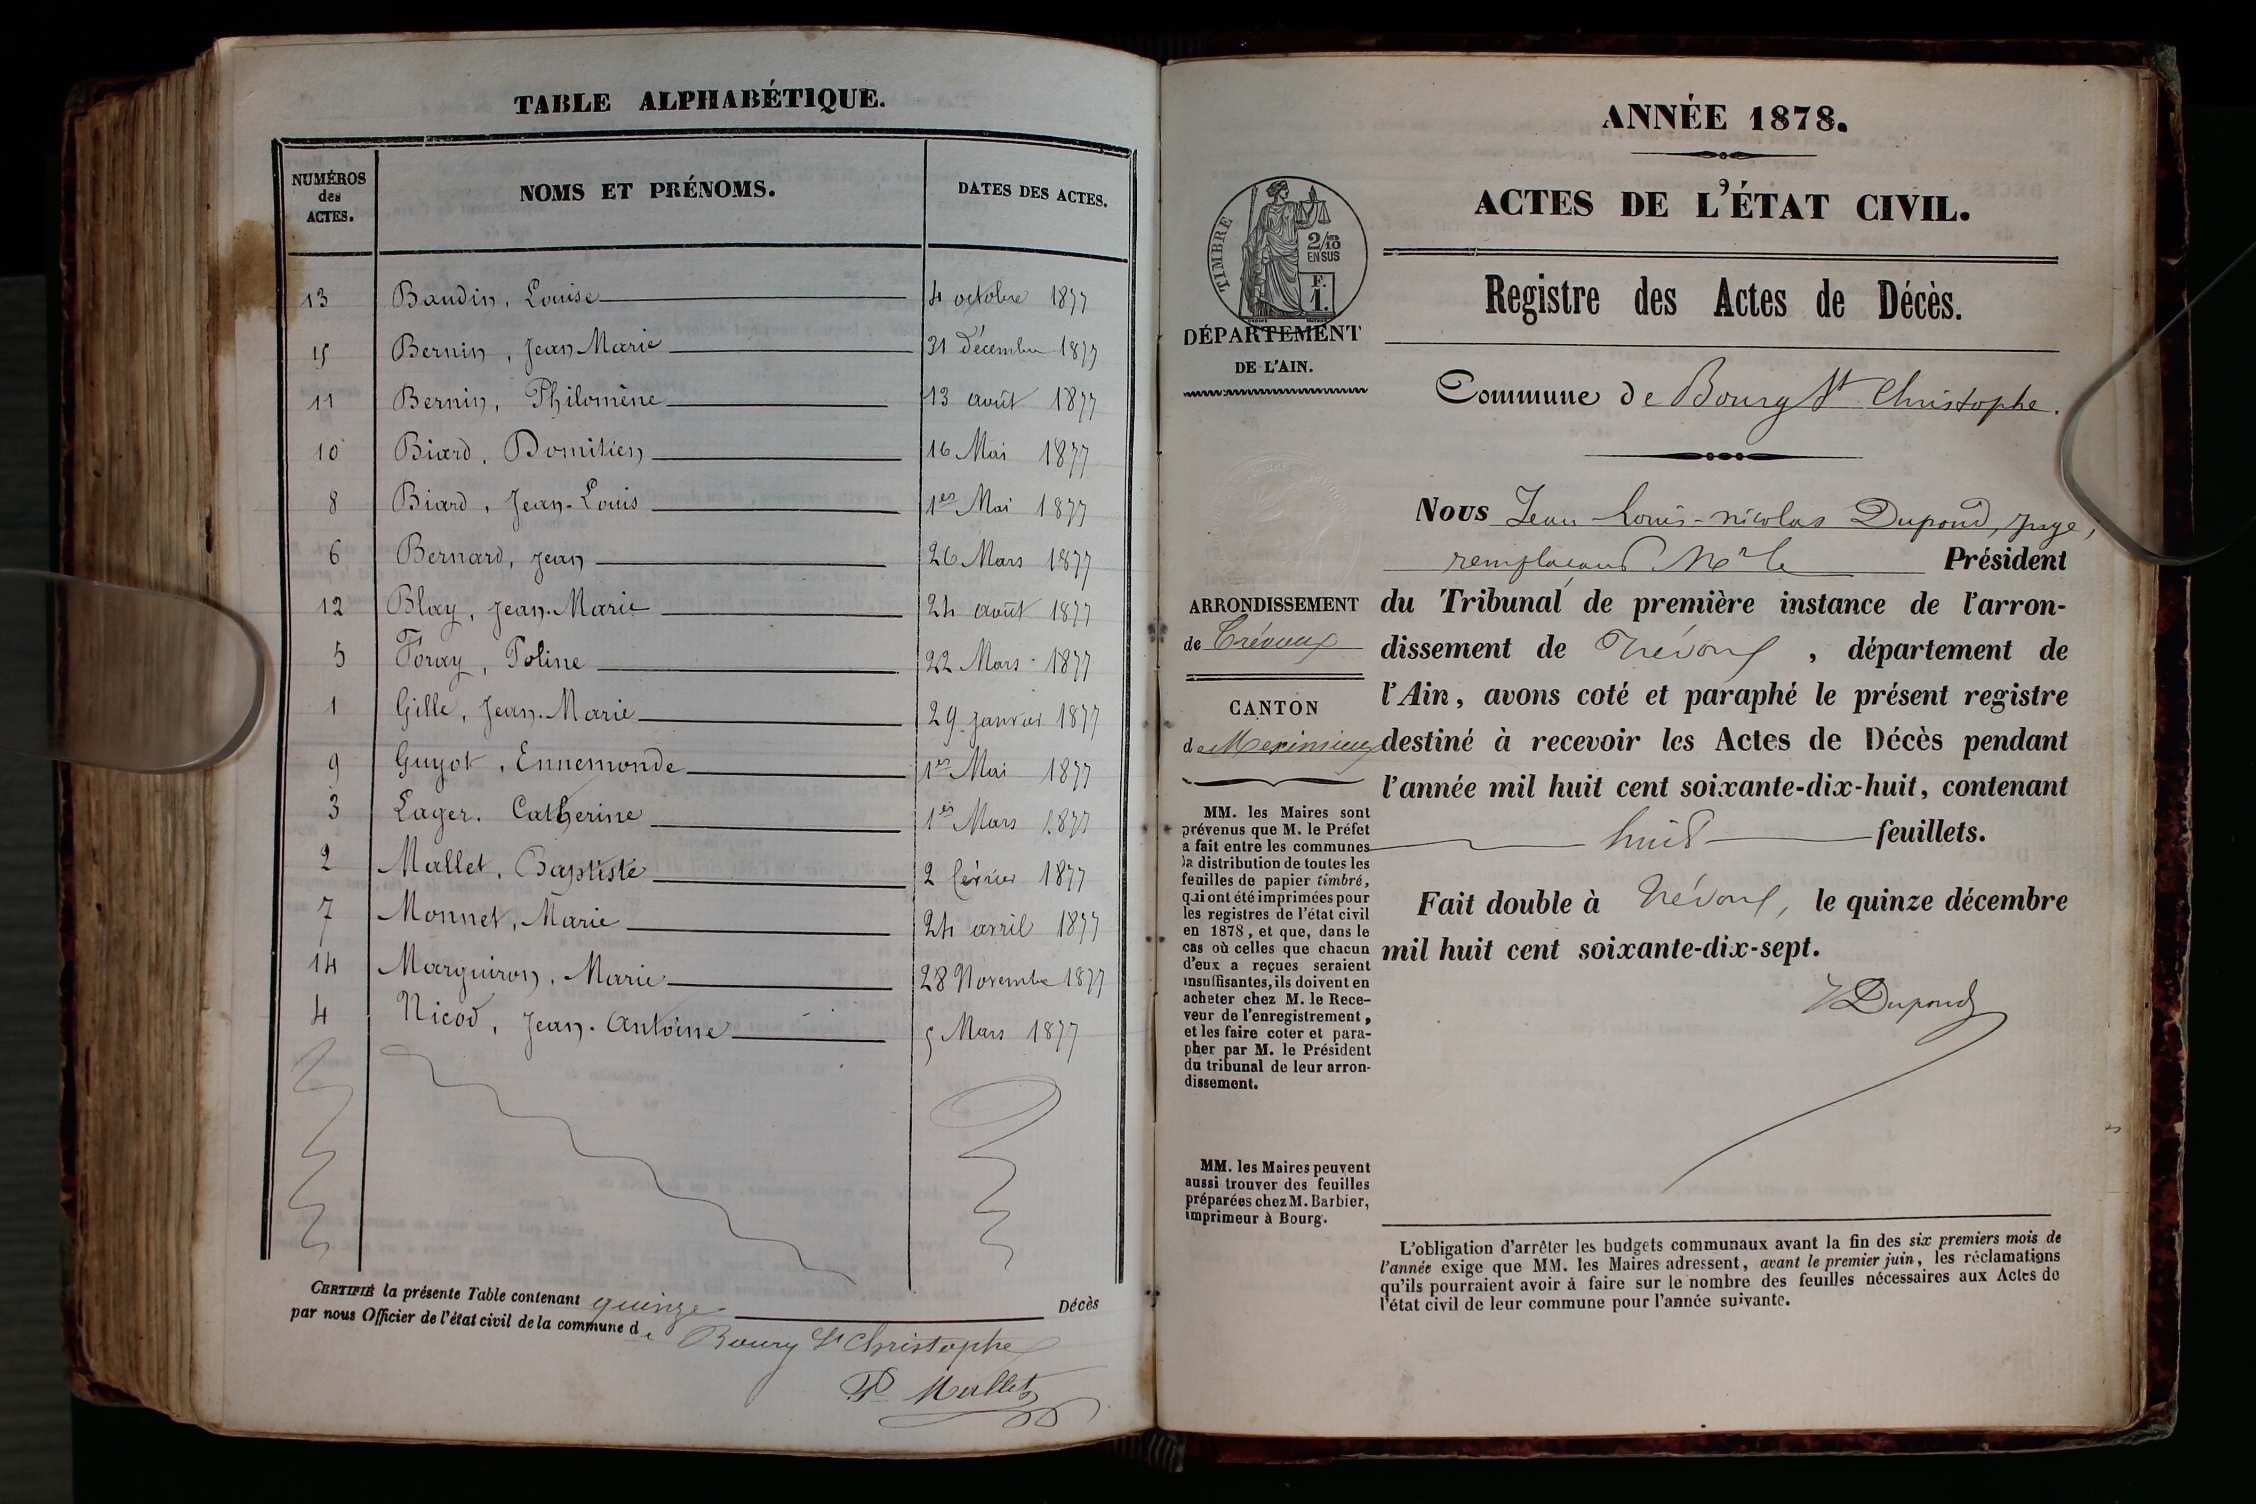 TABLE ALPHABÉTIQUE.
NUMÉROS des ACTES.
NOMS ET PRÉNOMS.
DATES DES ACTES.
13 Baudin, Louise 4 octobre 1877
15 Bernin, Jean Marie 31 Décembre 1877
11 Bernin, Philomène 13 août 1877
10 Biard, Domitien 16 Mai 1877
8 Biard, Jean-Louis 1er Mai 1877
6 Bernard, Jean 26 Mars 1877
12 Blay, Jean-Marie 24 août 1877
5 Foray, Poline 22 Mars 1877
1 Gille, Jean-Marie 29 Janvier 1877
9 Guyot, Ennemonde 1er Mai 1877
3 Lager. Catherine 1er Mars 1877
2 Mallet, Baptiste 2 février 1877
7 Monnet, Marie 24 avril 1877
14 Marguiron, Marie 28 Novembre 1877
4 Nicod, Jean-Antoine 5 Mars 1877
CERTIFIÉ la présente Table contenant quinze Décès
par nous Officier de l'état civil de la commune de Bourg St Christophe
Mallet
ANNÉE 1878.
ACTES DE L'ÉTAT CIVIL.
Registre des Actes de Décès.
TIMBRE
2/10
EN SUS
F.
1.
DÉPARTEMENT
DE L'AIN.
Commune de Bourg St Christophe.
Nous Jean Louis-nicolas Dupond, juge,
remplacant Mr le Président
du Tribunal de première instance de l'arron-
dissement de Trévoux, département de
l'Ain, avons coté et paraphé le présent registre
destiné à recevoir les Actes de Décès pendant
l'année mil huit cent soixante-dix-huit, contenant
huit feuillets.
Fait double à Trévoux, le quinze décembre
mil huit cent soixante-dix-sept.
Dupond
ARRONDISSEMENT
de Trévoux
CANTON
de Meximieux
MM. les Maires sont
prévenus que M. le Préfet
a fait entre les communes
la distribution de toutes les
feuilles de papier timbré,
qui ont été imprimées pour
les registres de l'état civil
en 1878, et que, dans le
cas où celles que chacun
d'eux a reçues seraient
insuffisantes, ils doivent en
acheter chez M. le Rece-
veur de l'enregistrement,
et les faire coter et para-
pher par M. le Président
du tribunal de leur arron-
dissement.
MM. les Maires peuvent
aussi trouver des feuilles
préparées chez M. Barbier,
imprimeur à Bourg.
L'obligation d'arrêter les budgets communaux avant la fin des six premiers mois de
l'année exige que MM. les Maires adressent, avant le premier juin, les réclamations
qu'ils pourraient avoir à faire sur le nombre des feuilles nécessaires aux Actes de
l'état civil de leur commune pour l'année suivante.